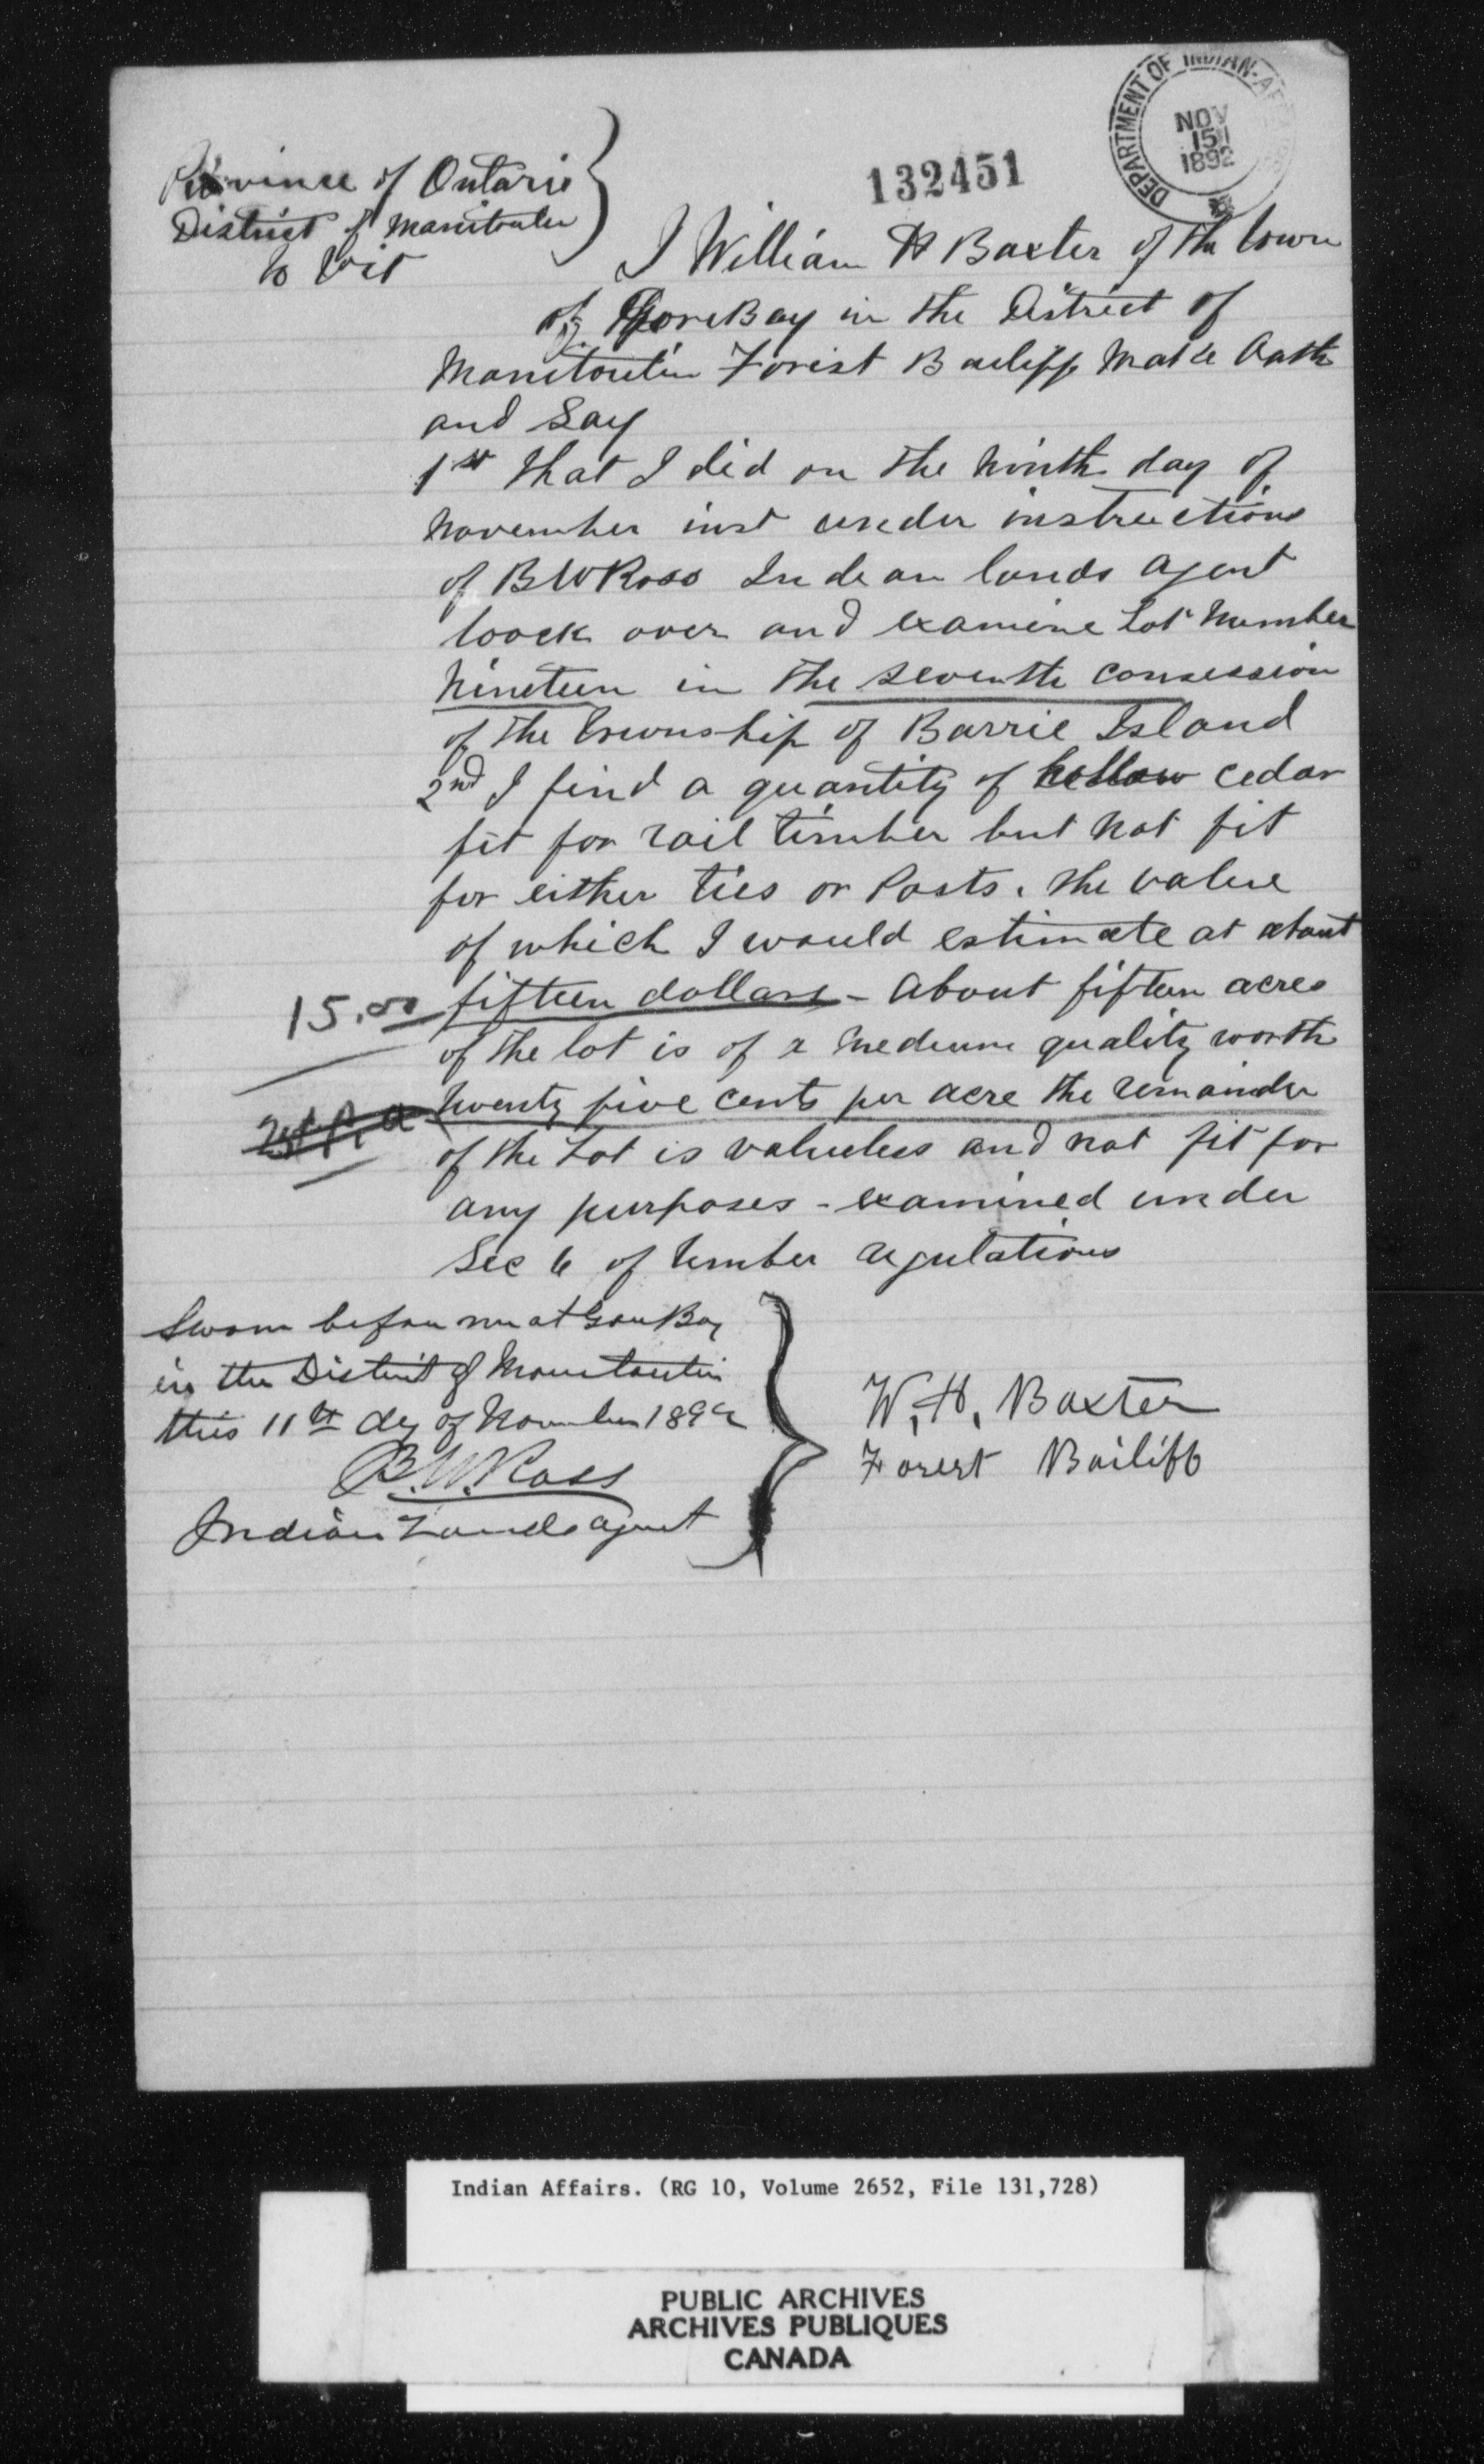 DEPARTMENT OF INDIAN AFFAIRS
NOV
15
1892
132451
Province of Ontario
District of Manitoulin
To Wit
I William H Baxter of the town
of Gore Bay in the District of
Manitoulin Forist Bailiff Make Oath
and Say
1st that I did on the Ninth day of
November inst under instructions
of B W Ross Indean lands agent
loock over and examine Lot Number
Nineteen in the seventh consession
of the township of Barrie Island
2nd I find a quantity of hollow cedar
fit for rail timber but not fit
for either ties or Posts. the value
of which I would estimate at about
15.00 fifteen dollars - About fifteen acres
of the lot is of a medium quality worth
twenty five cents per acre the remainder
of the Lot is valueless and not fit for
any purposes - examined under
Sec 6 of timber regulations
Sworn before me at Gore Bay
in the District of Manitoulin
this 11th day of November 1892
B.W. Ross
Indian Lands agent
W. H. Baxter
Forest Bailiff
Indian Affairs. (RG 10, Volume 2652, File 131,728)
PUBLIC ARCHIVES
ARCHIVES PUBLIQUES
CANADA